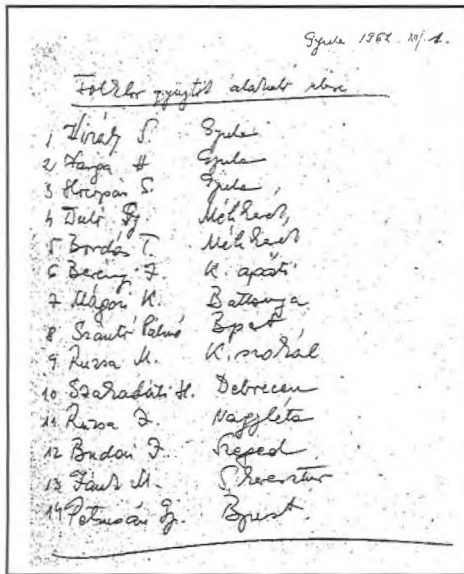 Gyula 1962. XI/1.
Folklór gyűjtők alakuló ülése
1 Virág S. Gyula
2 Varga H Gyula
3 Hocopán S. Gyula,
4 Duló Gy Méhkerék,
5 Bordás T. Méhkerék
6 Berény F. K. apáti
7 Mágori K. Battonya
8 Szántó Pálné Bpest
9 Ruzsa M. K. szakál
10 Szabadáti H. Debrecen
11 Ruzsa F. Nagyléta
12 Budai F. Szeged
13 M.
14 Petrusán Gy. Bpest